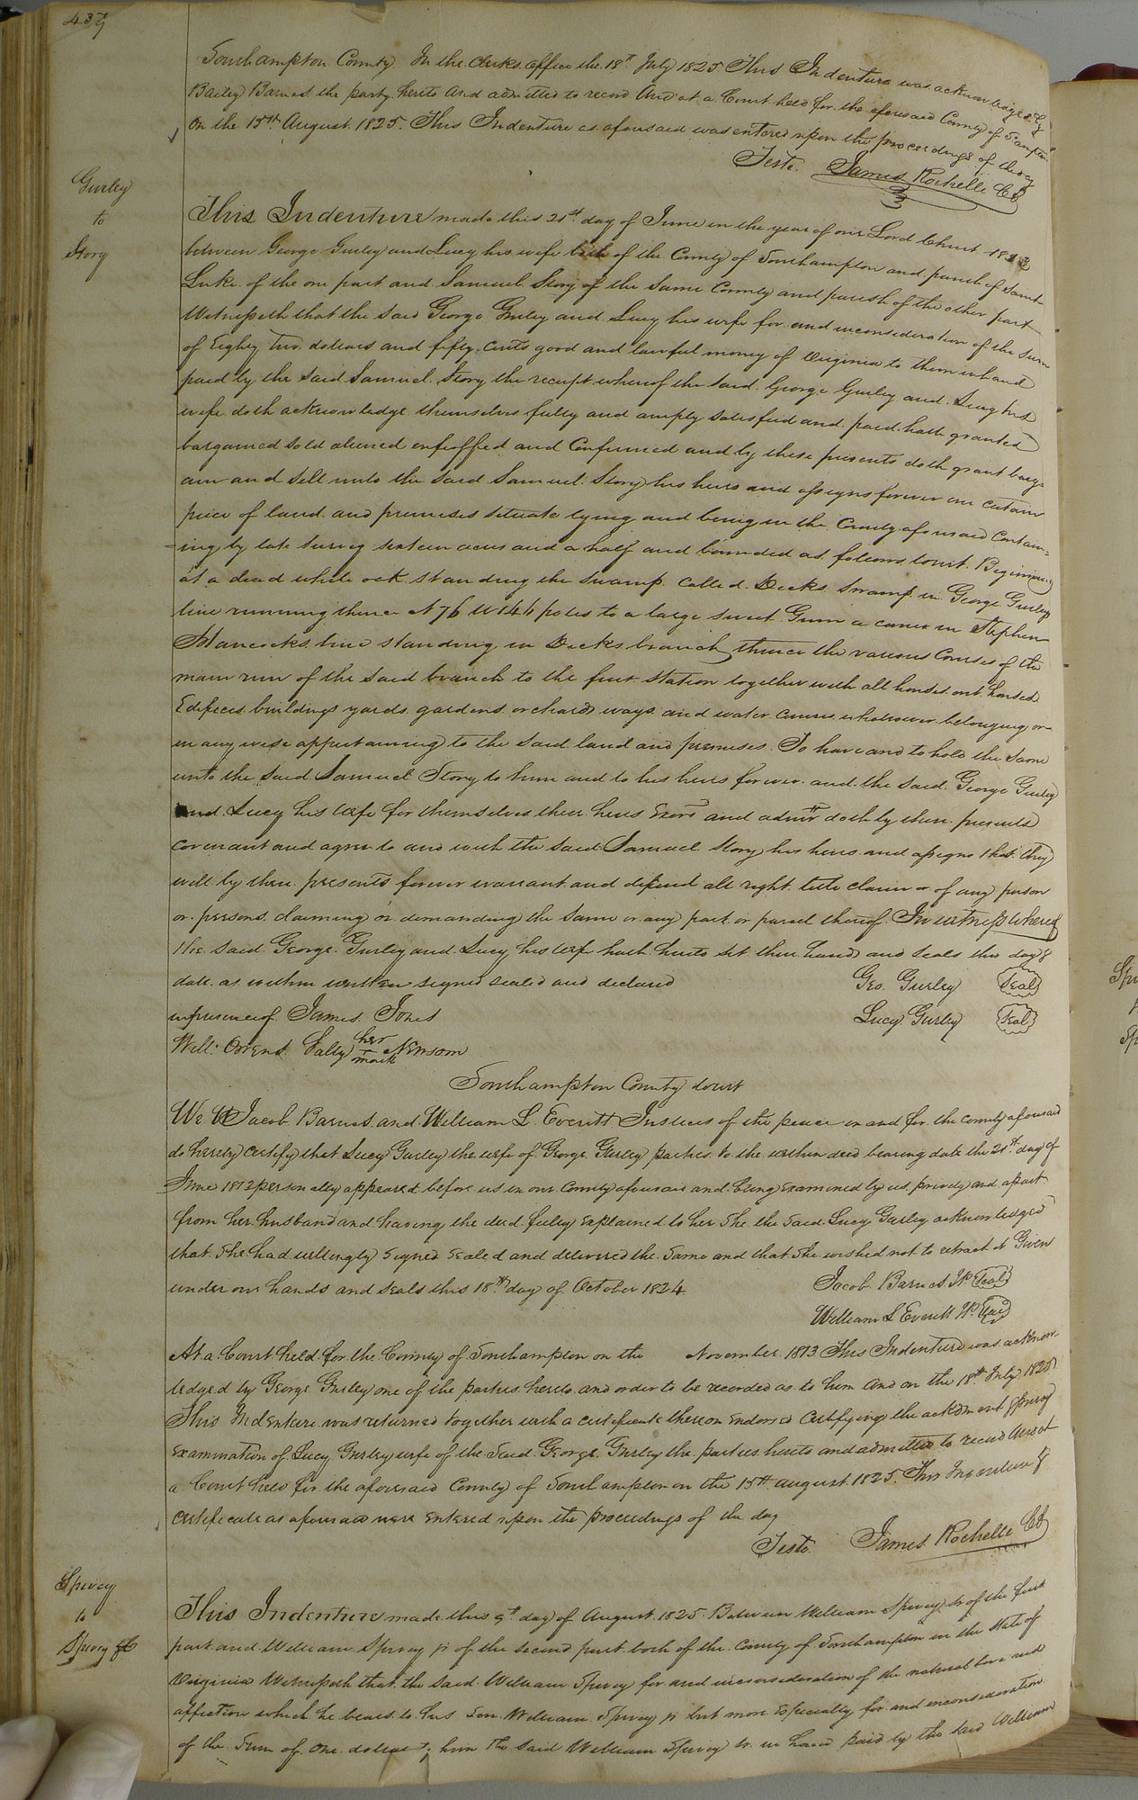 437
Southampton County In the Clerks office the 18th July 1825 This Indenture was acknowledged by
Bailey Barnes the party hereto and admitted to record And at a Court held for the aforesaid County of Southampton
on the 15th August 1825. This Indenture as aforesaid was entered upon the proceedings of the day
Teste. James Rochelle CC
Gurley
to
Story
This Indenture made this 21st day of June in the year of our Lord Christ 1813
between George Gurley and Lucy his wife both of the County of Southampton and parish of Saint
Luke of the one part and Samuel Story of the same County and parish of the other part
Witnesseth that the said George Gurley and Lucy his wife for and inconsideration of the sum
of Eighty two dollars and fifty cents good and lawful money of Virginia to them in hand
paid by the said Samuel Story the receipt whereof the said George Gurley and Lucy his
wife doth acknowledge themselves fully and amply satisfied and paid hath granted
bargained sold aliened enfeoffed and Confirmed and by these presents doth grant barg
ain and sell unto the said Samuel Story his heirs and assigns forever one certain
piece of land and premises situate lying and being in the County aforesaid Contain-
ing by late survey sixteen acres and a half and bounded as follows towit. Beginning
at a dead white oak standing the swamp called Decks Swamp in George Gurleys
line running thence N 76 W 146 poles to a large sweet Gum a corner in Stephen
Hancocks line standing in Decks branch thence the various Courses of the
main run of the said branch to the first station together with all houses out houses
Edifices buildings yards gardens orchards ways and water courses whatsoever belonging or
in any wise appertaining to the said land and premises. To have and to hold the same
unto the said Samuel Story to him and to his heirs forever and the said George Gurley
and Lucy his wife for themselves their heirs Exors and admrs doth by these presents
covenant and agree to and with the said Samuel Story his heirs and assigns that they
will by these presents forever warrant and defend all right title claim of any person
or persons claiming or demanding the same or any part or parcel thereof. In witness whereof
the said George Gurley and Lucy his wife hath hereto set their hands and seals this day &
date as within written signed sealed and declared Geo. Gurley Seal
in presence of James Jones Lucy Gurley Seal
Will: Owens Sally her mark Newsom
Southampton County towit
We Jacob Barnes and William L Everitt Justices of the peace in and for the county aforesaid
do hereby certify that Lucy Gurley the wife of George Gurley parties to the within deed bearing date the 21st day of
June 1813 personally appeared before us in our County aforesaid and being examined by us privily and apart
from her husband and having the deed fuley explained to her She the said Lucy Gurley acknowledged
that She had willingly Signed Sealed and delivered the Same and that She wished not to retract it Given
under our hands and seals this 18th day of October 1824 Jacob Barnes JP Seal
William L Everitt JP Seal
At a Court held for the County of Southampton on the November 1813 This Indenture was acknow-
ledged by George Gurley one of the parties hereto and order to be recorded as to him And on the 18th July 1825
This Indenture was returned together with a certificate thereon Endorsed Certifying the acknment & privy
Examination of Lucy Gurley wife of the Said George Gurley the parties hereto and admitted to record And at
a Court held for the aforesaid County of Southampton on the 15th August 1825. This Indenture &
certificate as aforesaid were entered upon the proceedings of the day
Teste James Rochelle CC
Spivey
to
Spivey
This Indenture made this 9th day of August 1825 Between William Spivey Sr of the first
part and William Spivey jr of the second part both of the County of Southampton in the State of
Virginia Witnesseth that the Said William Spivey for and inconsideration of the natural love and
affection which he bears to his Son William Spivey jr but more Especially for and inconsideration
of the Sum of One dollar to him the said William Spivey Sr in hand paid by the said William